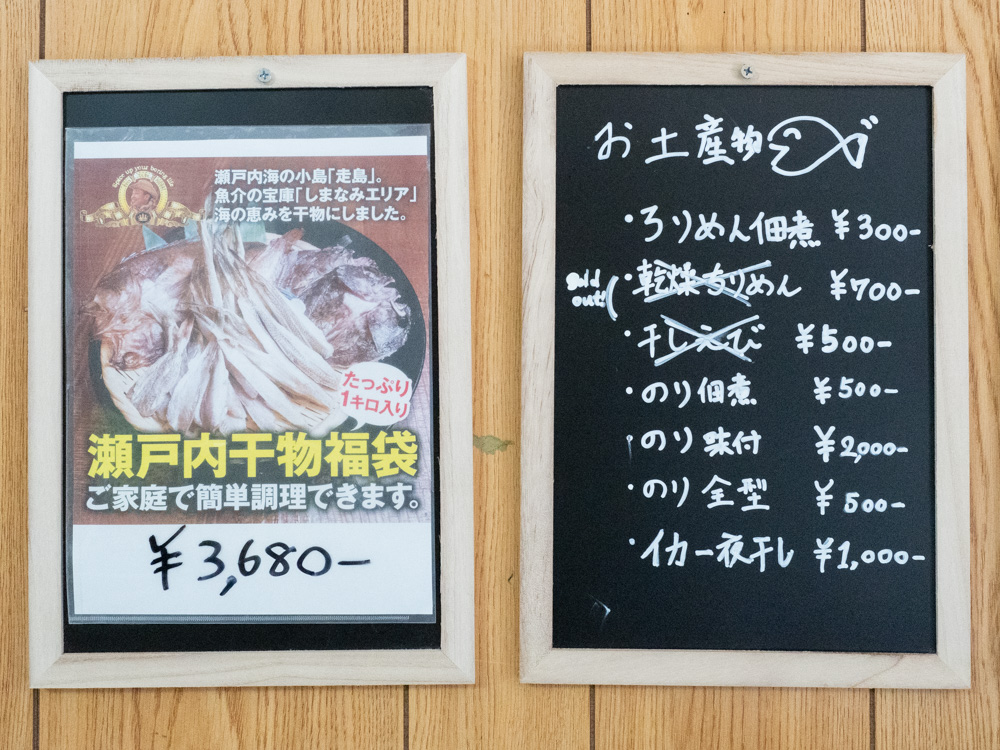 瀬戸内海の小島「走島」。
魚介の宝庫「しまなみエリア」
海の恵みを干物にしました。
たっぷり
1キロ入り
瀬戸内干物福袋
ご家庭で簡単調理できます。
¥3,680-
お土産物
・ろりめん佃煮 ¥300-
・乾燥ちりめん ¥700-
sold
out!
・干しえび ¥500-
・のり佃煮 ¥500-
・のり味付 ¥2,000-
・のり全型 ¥500-
・イカ一夜干し ¥1,000-